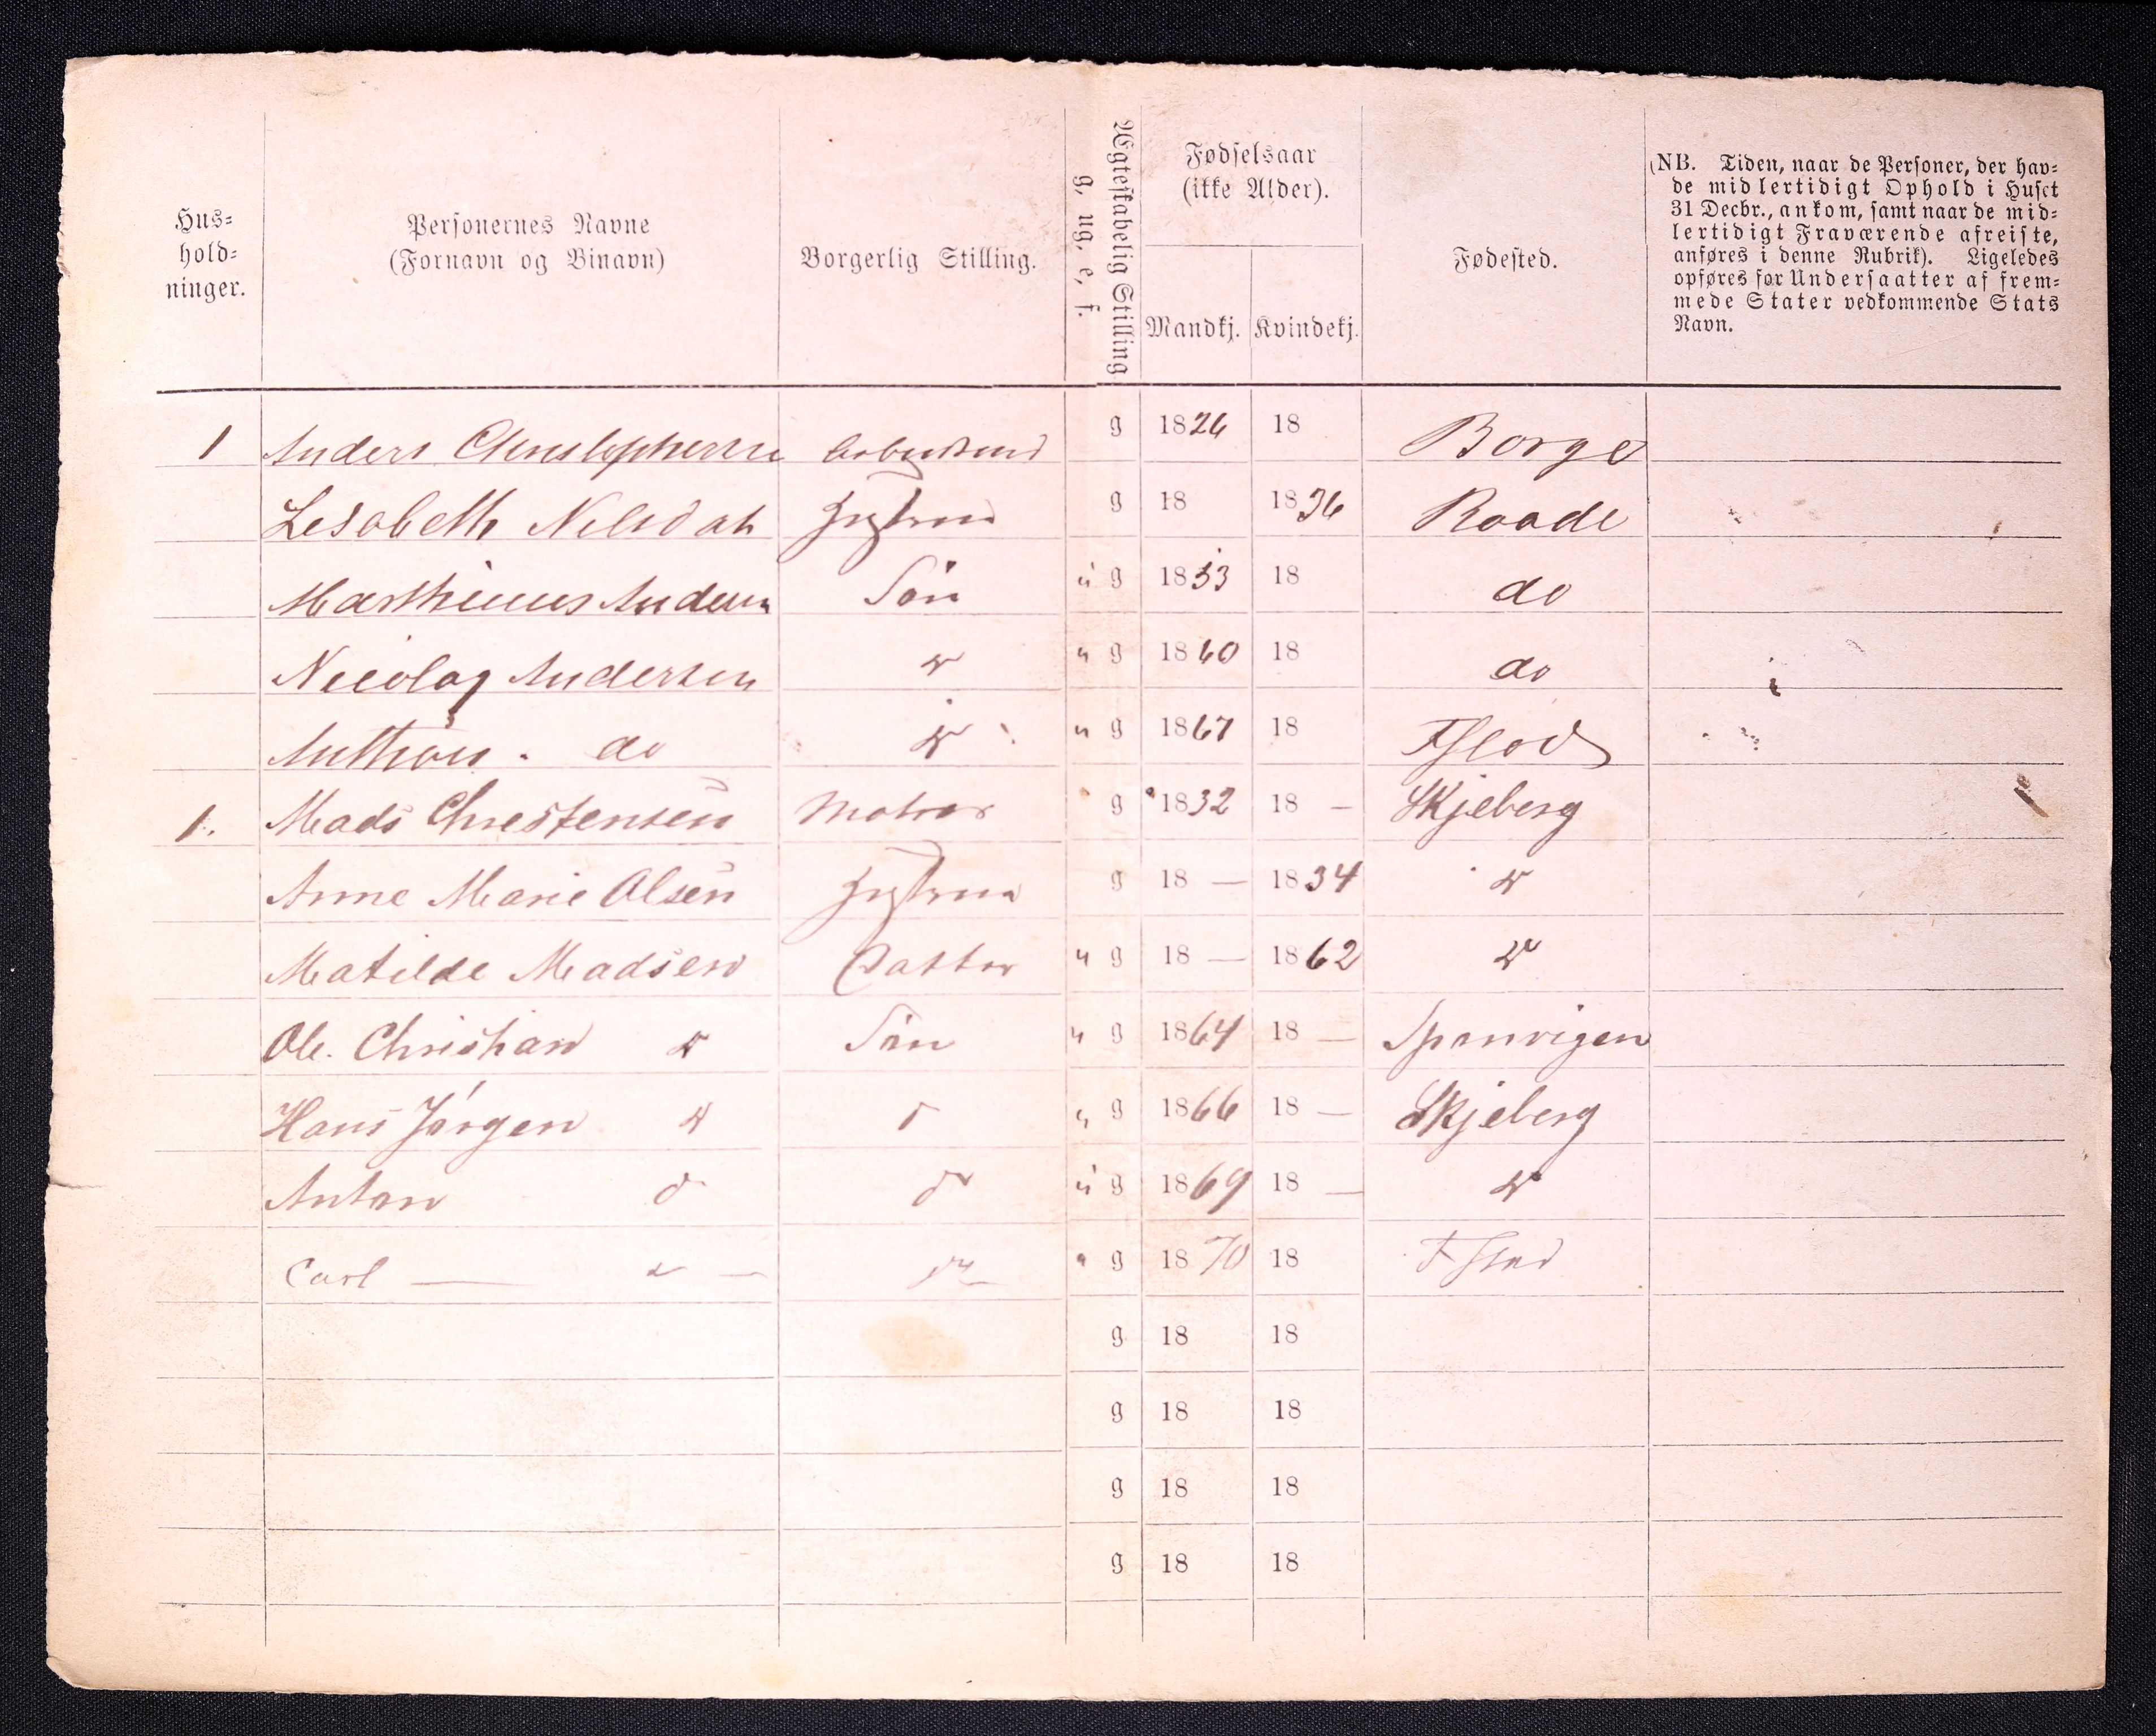 Hus-
hold-
ninger.
Personernes Navne
(Fornavn og Binavn)
Borgerlig Stilling.
Ægteskabelig Stilling
g, ug, e, f.
Fødselsaar
(ikke Alder).
Mandkj. Kvindekj.
Fødested.
(NB. Tiden, naar de Personer, der hav-
de midlertidigt Ophold i Huset
31 Decbr., ankom, samt naar de mid-
lertidigt Fraværende afreiste,
anføres i denne Rubrik). Ligeledes
opføres for Undersaatter af frem-
mede Stater vedkommende Stats
Navn.
1 Anders Christophersen g 1826 18 Borge
Lesabeth Nilsdat g 18 1836 Raade
Marthinus Andersen Sön u g 1853 18 do
Nicolay Andersen do u g 1860 18 do
Anthon. do do u g 1867 18 FHlod
1. Mads Christensen Matros g 1832 18 — Skjeberg
Anne Marie Olsen g 18 — 1834 do
Matilde Madsen Datter u g 18 — 1862 do
Ole. Christian do Sön u g 1864 18 — Spanvigen
Hans Jörgen do d u g 1866 18 — Skjeberg
Anton do do u g 1869 18 — do
Carl — do — do u g 1870 18
g 18 18
g 18 18
g 18 18
g 18 18